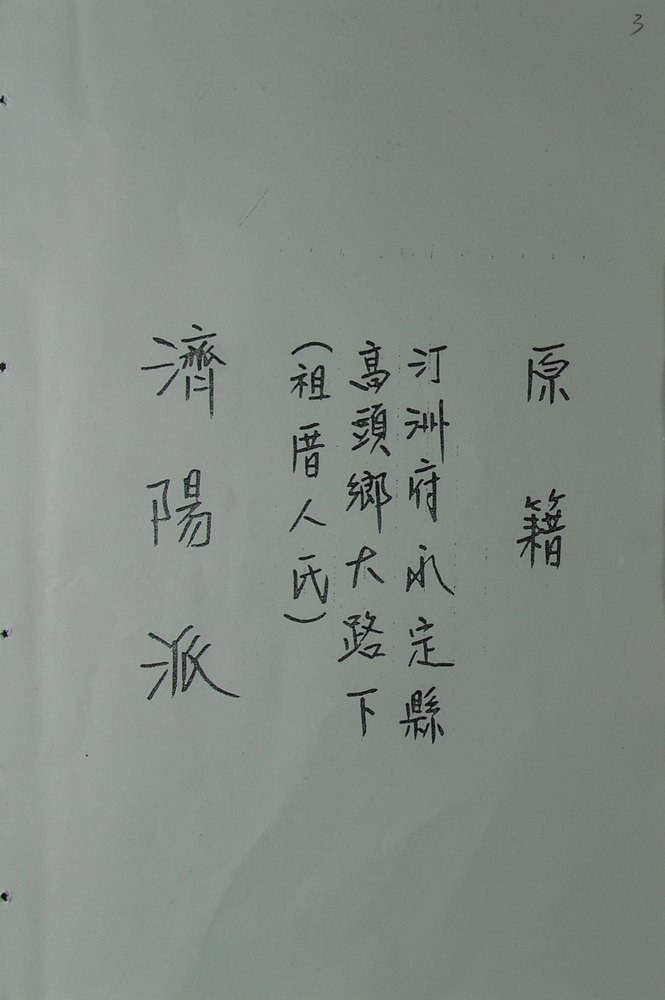 3
原籍
汀洲府永定縣
高頭鄉大路下
(祖厝人氏)
濟陽派